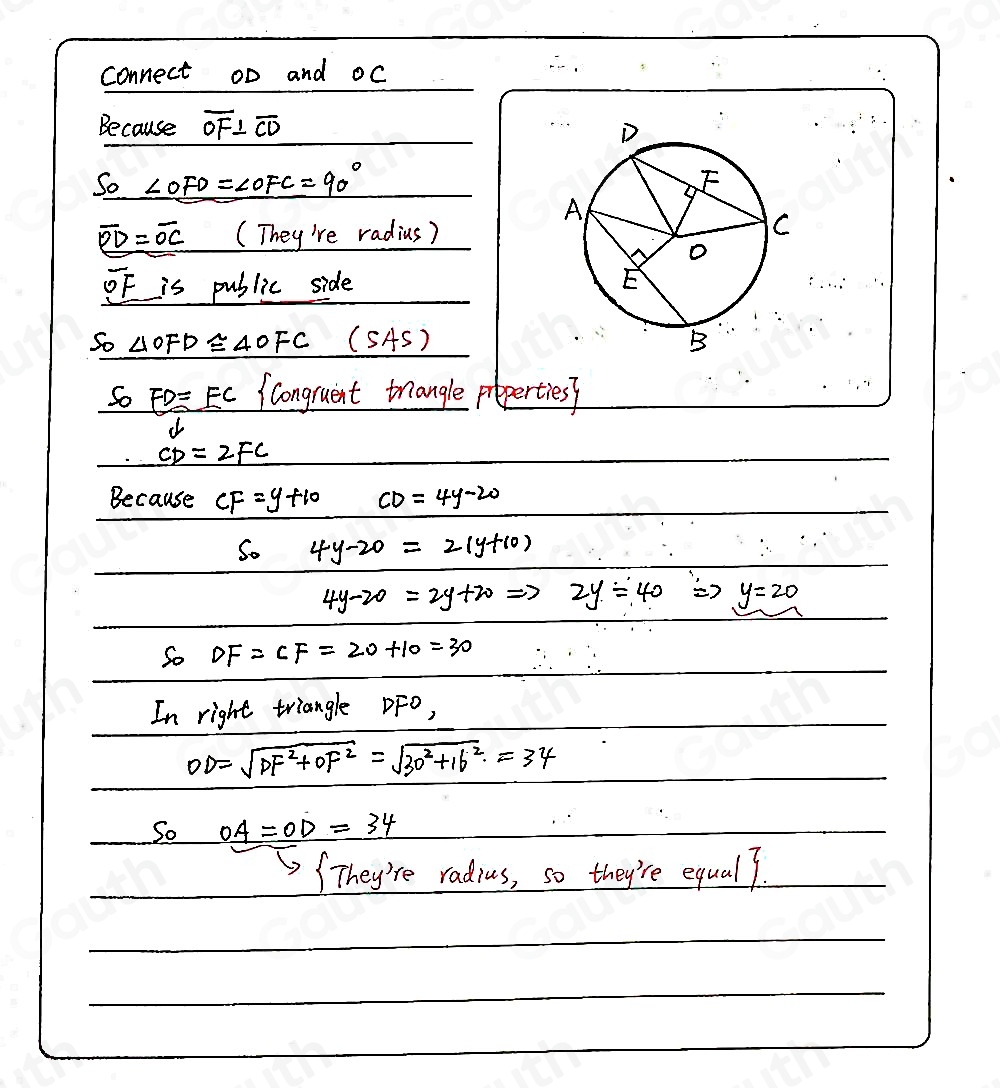 Connect OD and OC
Because \overline{OF}⊥\overline{CD}
So ∠OFD=∠OFC=90°
\overline{OD}=\overline{OC} (They're radius)
\overline{OF} is public side
So △OFD≅△OFC (SAS)
So FD=FC {Congruent triangle properties}
↓
CD=2FC
Because CF=y+10 CD=4y-20
So 4y-20 = 2(y+10)
4y-20 = 2y+20 => 2y=40 => y=20
So DF=CF=20+10=30
In right triangle DFO,
OD=√(DF²+OF²) = √(30²+16²) = 34
So OA=OD=34
{They're radius, so they're equal}.
D
F
A
C
O
E
B
Gauth